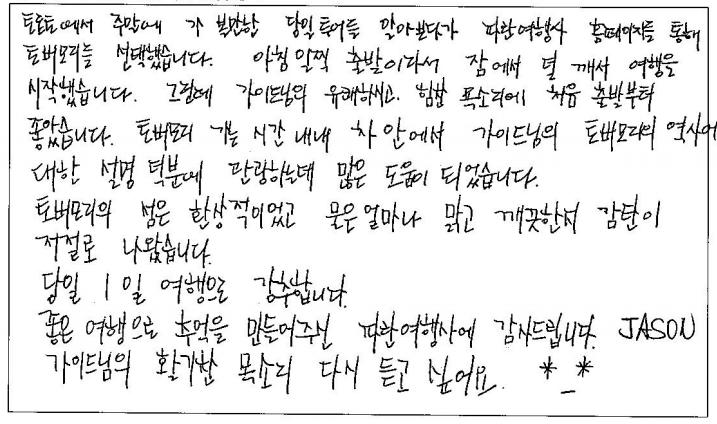 토론토에서 주말에 가 볼만한 당일 투어를 알아보다가 파란여행사 홈페이지를 통해
토버모리를 선택했습니다. 아침 일찍 출발이라서 잠에서 덜 깨서 여행을
시작했습니다. 그런데 가이드님의 유쾌하시고, 힘찬 목소리에 처음 출발부터
좋았습니다. 토버모리 가는 시간 내내 차 안에서 가이드님의 토버모리의 역사에
대한 설명 덕분에 관광하는데 많은 도움이 되었습니다.
토버모리의 섬은 환상적이었고 물은 얼마나 맑고 깨끗한지 감탄이
저절로 나왔습니다.
당일 1일 여행으로 강추합니다.
좋은 여행으로 추억을 만들어주신 파란여행사에 감사드립니다. JASON
가이드님의 활기찬 목소리 다시 듣고 싶어요. *_*